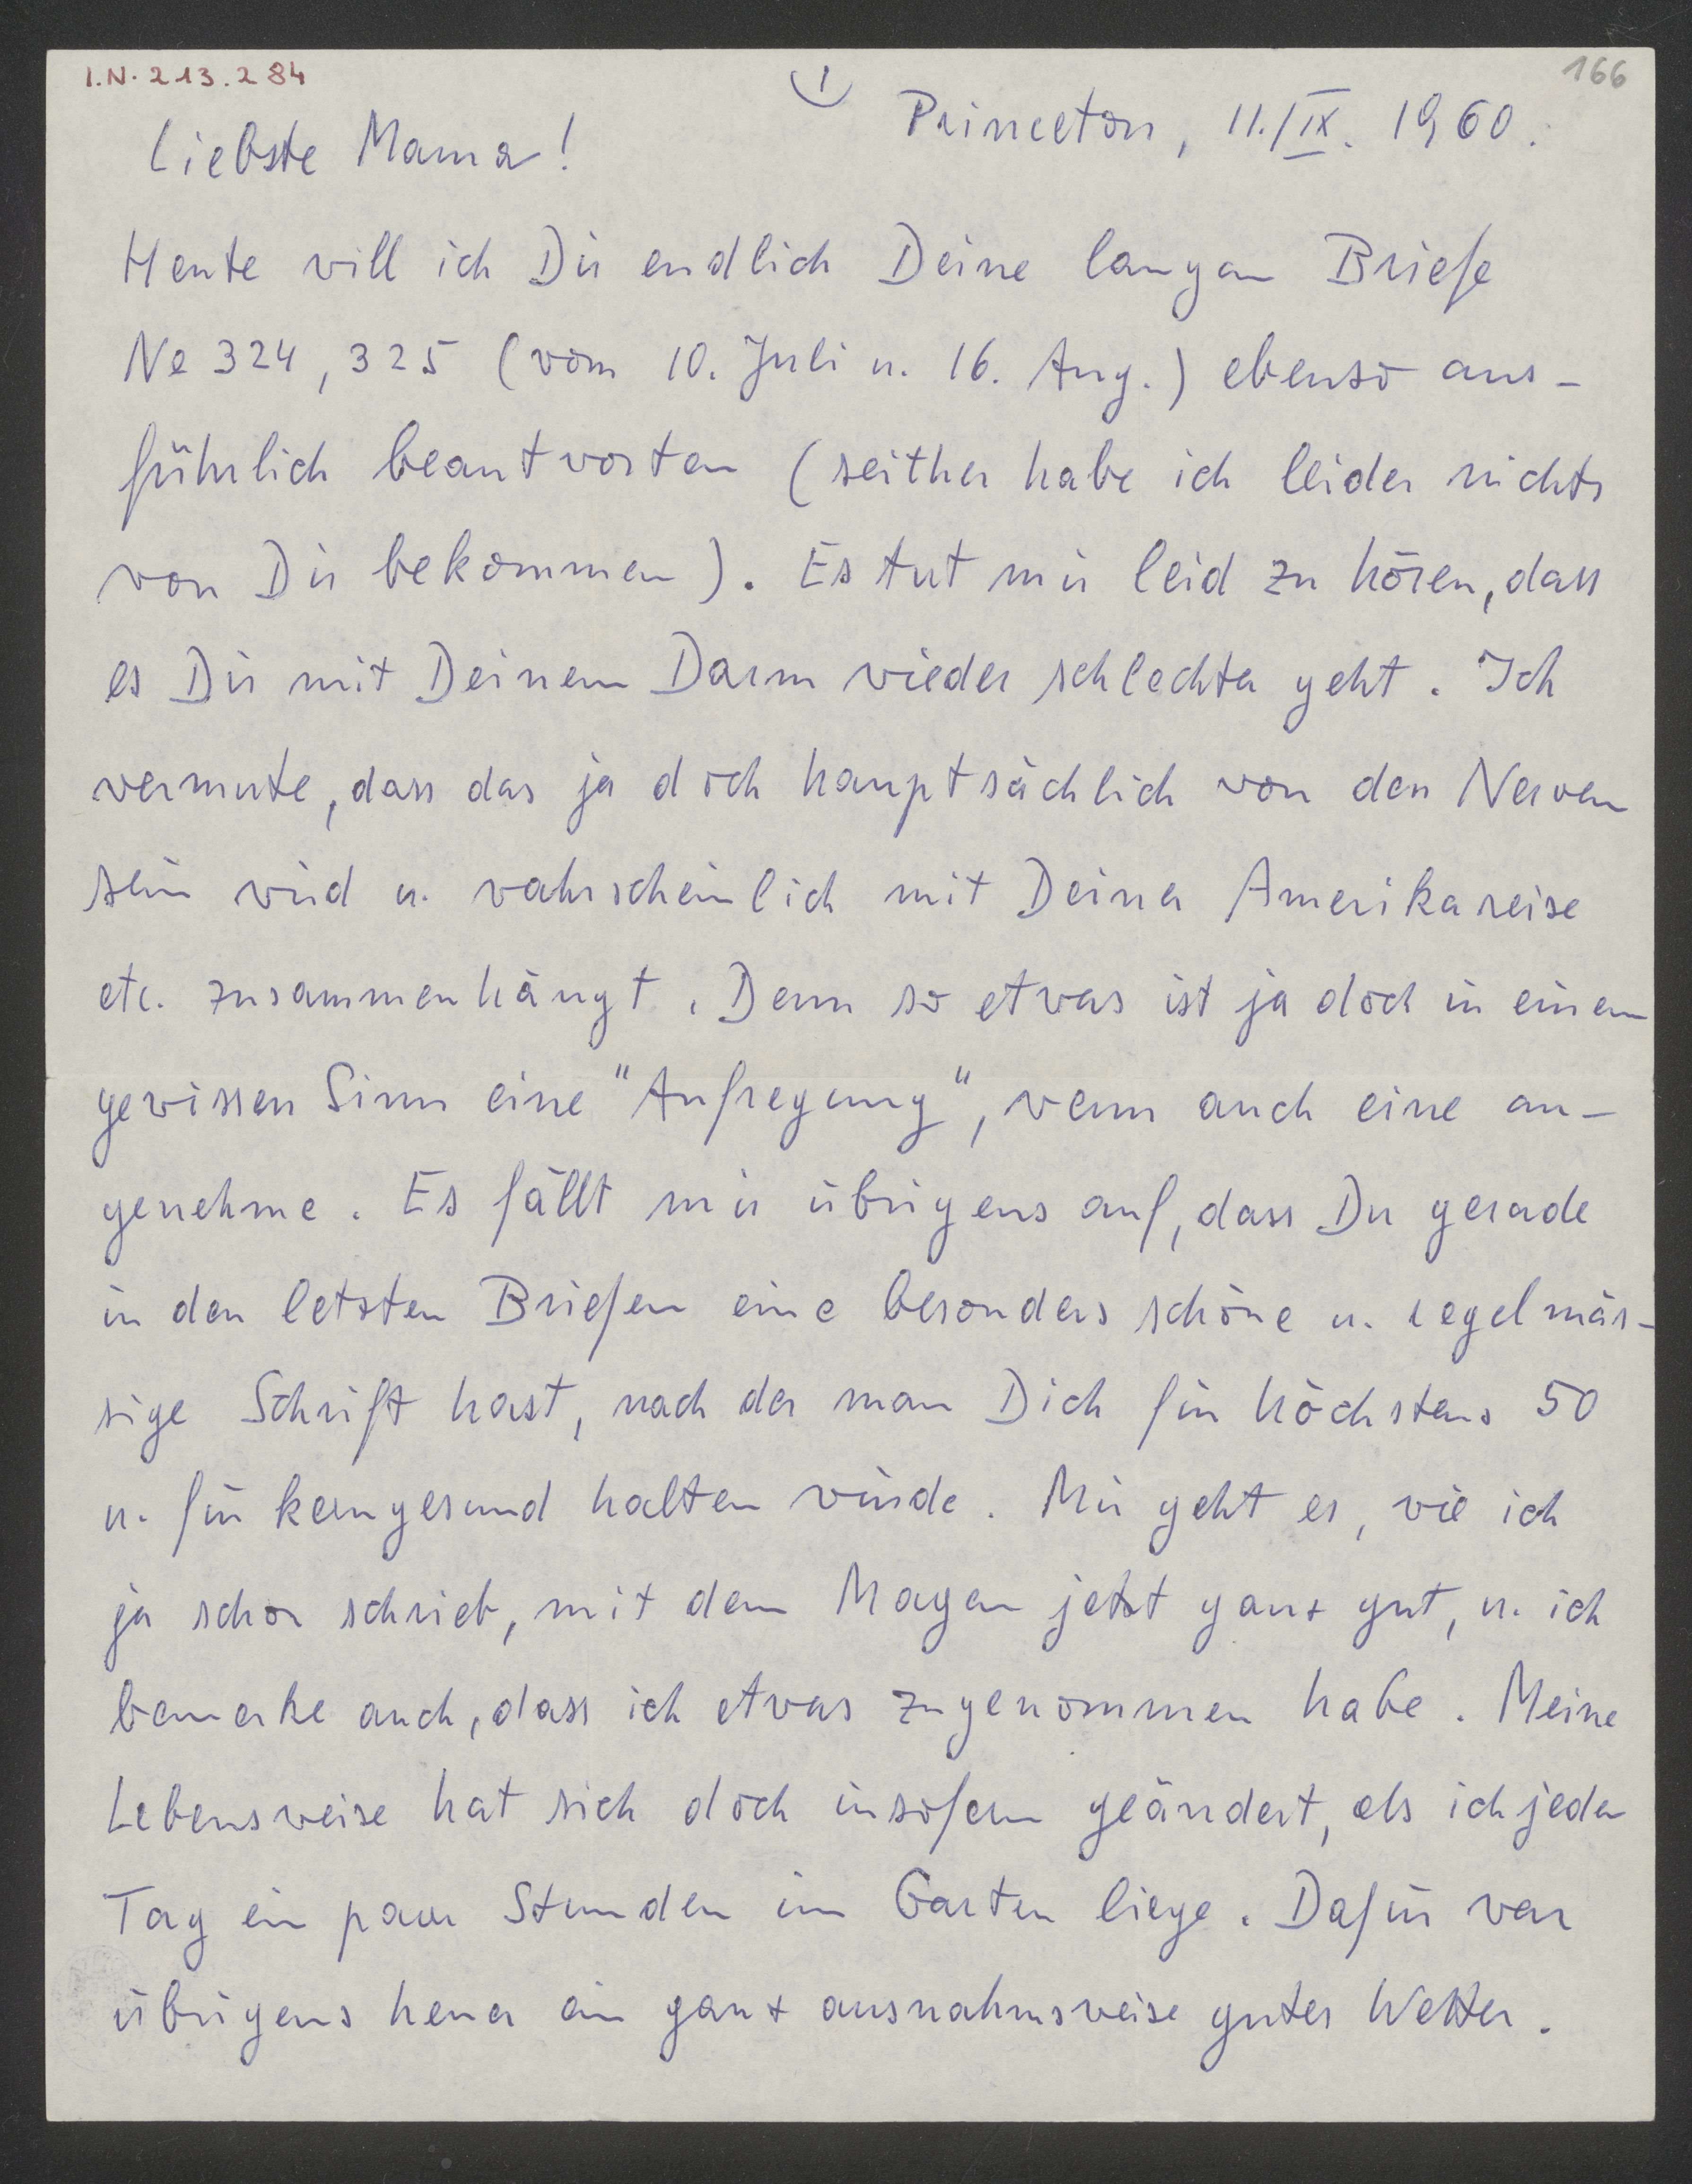 I.N. 213.284
1
166
Princeton, 11./IX. 1960.
Liebste Mama!
Heute will ich Dir endlich Deine langen Briefe
No 324, 325 (vom 10. Juli u. 16. Aug.) ebenso aus-
führlich beantworten (seither habe ich leider nichts
von Dir bekommen). Es tut mir leid zu hören, dass
es Dir mit Deinem Darm wieder schlechter geht. Ich
vermute, dass das ja doch hauptsächlich von den Nerven
sein wird u. wahrscheinlich mit Deiner Amerikareise
etc. zusammenhängt. Denn so etwas ist ja doch in einem
gewissen Sinn eine "Aufregung", wenn auch eine an-
genehme. Es fällt mir übrigens auf, dass Du gerade
in den letzten Briefen eine besonders schöne u. regelmäs-
sige Schrift hast, nach der man Dich für höchstens 50
u. für kerngesund halten würde. Mir geht es, wie ich
ja schon schrieb, mit dem Magen jetzt ganz gut, u. ich
bemerke auch, dass ich etwas zugenommen habe. Meine
Lebensweise hat sich doch insofern geändert, als ich jeden
Tag ein paar Stunden im Garten liege. Dafür war
übrigens heuer ein ganz ausnahmsweise gutes Wetter.